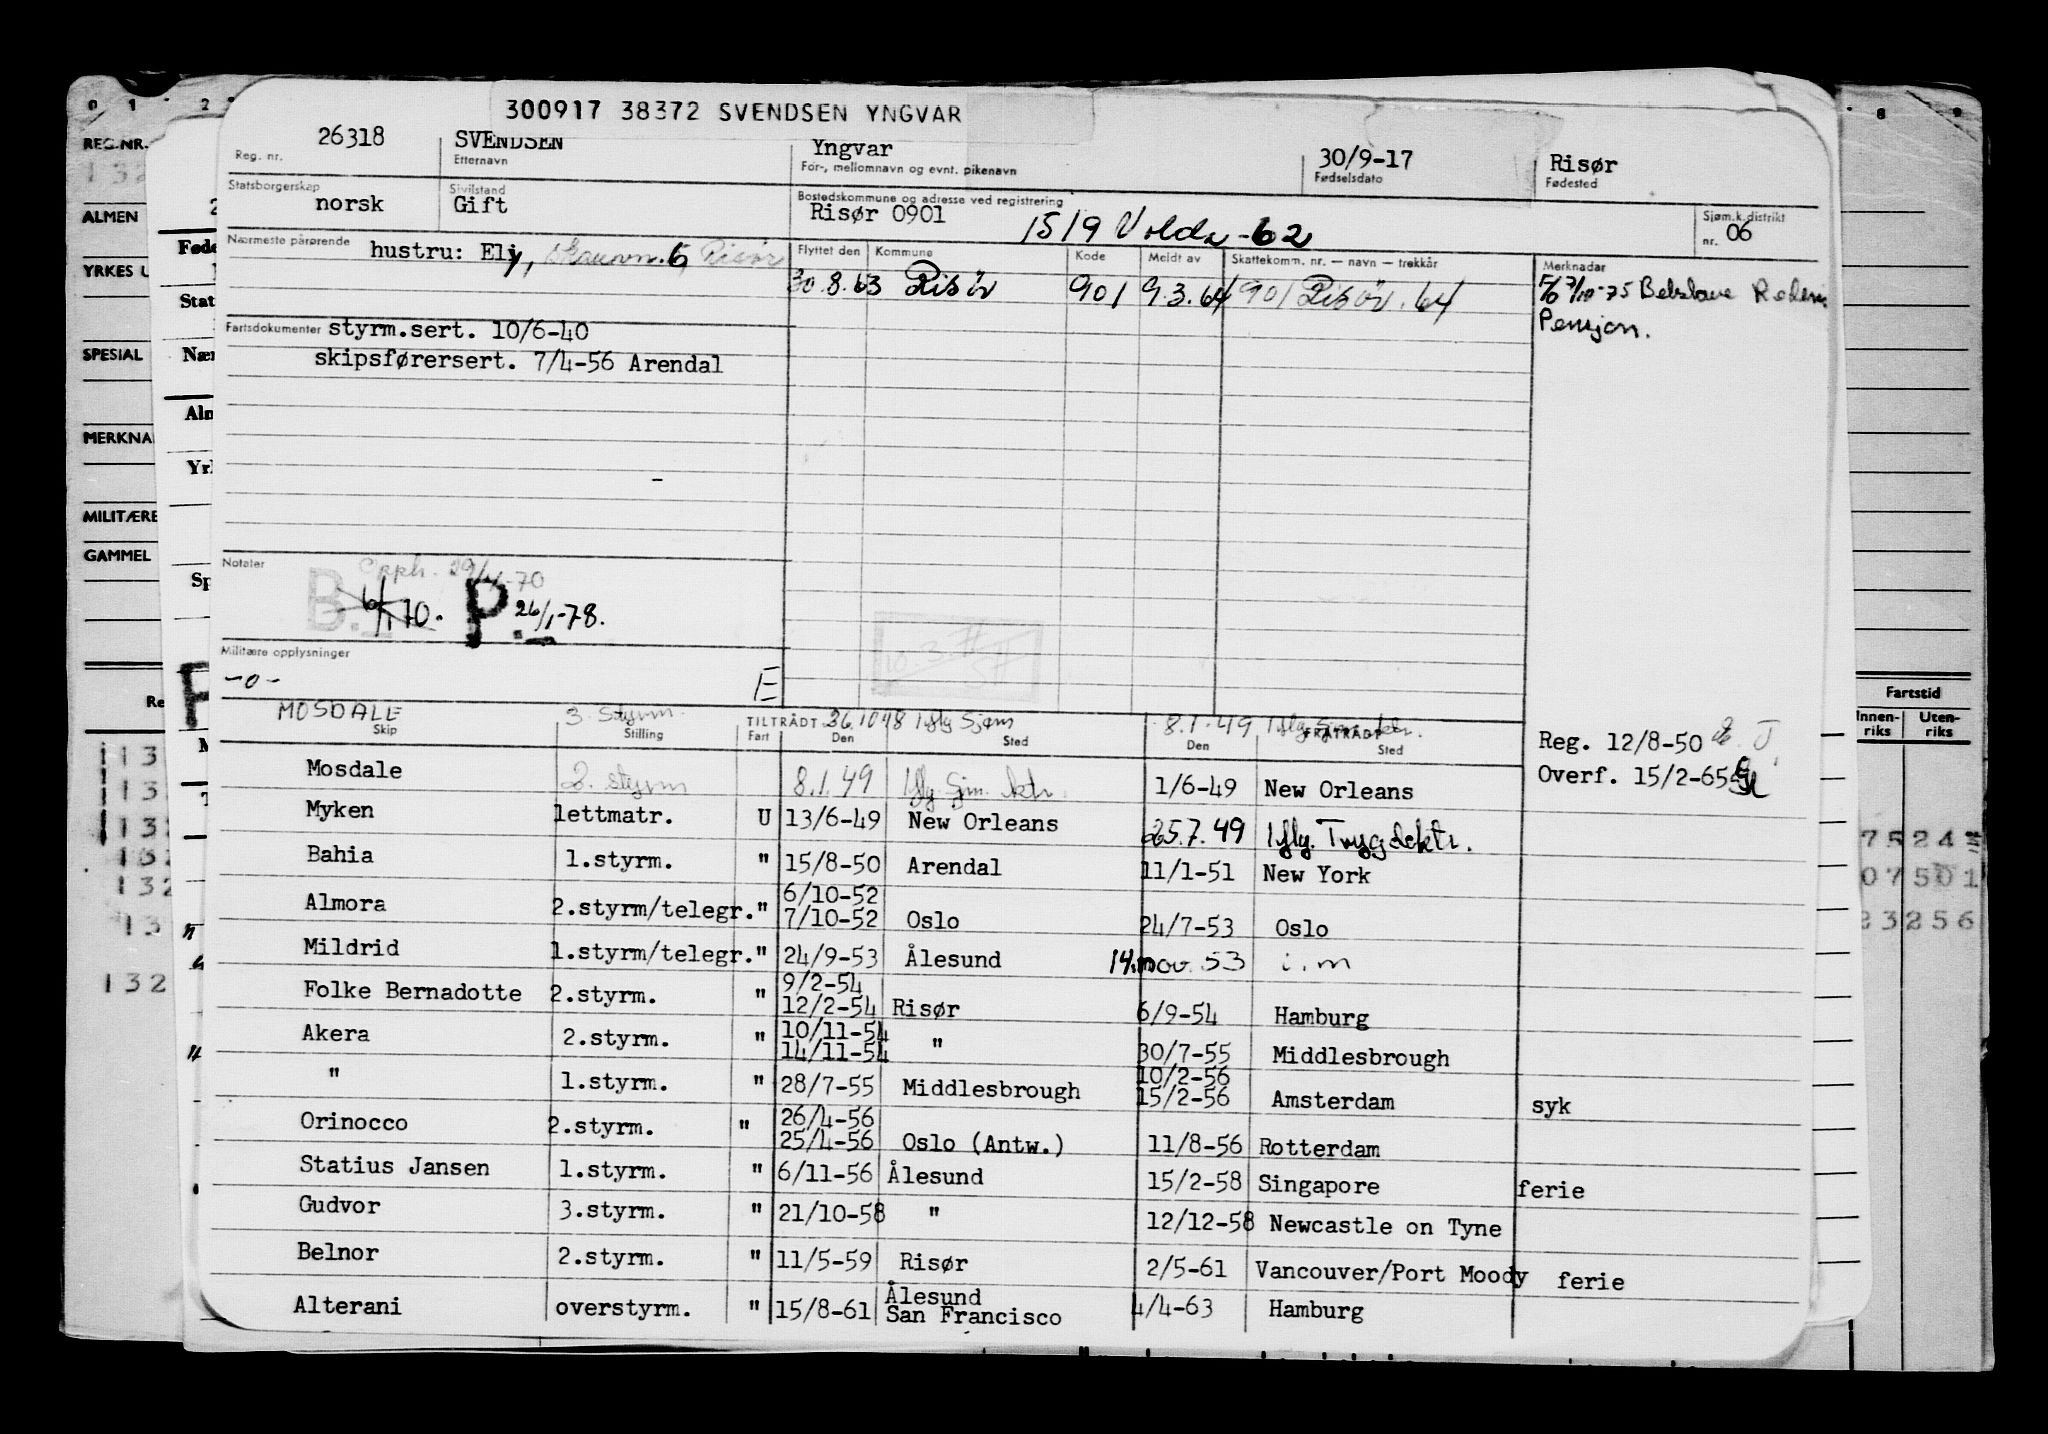 300917 38372 SVENDSEN YNGVAR
26318 SVENDSEN Yngvar 30/9-17 Risør
Reg. nr. Etternavn For-, mellomnavn og evnt. pikenavn Fødselsdato Fødested
Statsborgerskap Sivilstand Bostedskommune og adresse ved registrering Sjøm.k.distrikt
norsk Gift Risør 0901 1519 Volda -62 nr. 06
Nærmeste pårørende hustru: Ely, 6, Risør
Flyttet den Kommune Kode Meldt av Skattekomm. nr. — navn — trekkår Merknadar
30.8.63 Risör 901 9.3.64 901 Risör. 64
7/10-75 Rederi.
Pensjon.
Fartsdokumenter styrm.sert. 10/6-40
skipsførersert. 7/4-56 Arendal
Notater
Opph. -70
B. 70. P. 26/1-78.
Militære opplysninger
-o- E
MOSDALE 3. Styrm. TILTRÅDT 8.1.49 FRATRÅDT
Skip Stilling Fart Den Sted Den Sted
Reg. 12/8-50
Overf. 15/2-65
Mosdale 2. styrm 8.1.49 1/6-49 New Orleans
Myken lettmatr. U 13/6-49 New Orleans 25.7.49 Iflg. Trygdektr.
Bahia 1.styrm. " 15/8-50 Arendal 11/1-51 New York
Almora 2.styrm/telegr. " 6/10-52
7/10-52 Oslo 24/7-53 Oslo
Mildrid 1.styrm/telegr. " 24/9-53 Ålesund 14.nov. 53 i.m
Folke Bernadotte 2.styrm. " 9/2-54
12/2-54 Risør 6/9-54 Hamburg
Akera 2.styrm. " 10/11-54
14/11-54 " 30/7-55 Middlesbrough
" 1.styrm. " 28/7-55 Middlesbrough 10/2-56
15/2-56 Amsterdam syk
Orinocco 2.styrm. " 26/4-56
25/4-56 Oslo (Antw.) 11/8-56 Rotterdam
Statius Jansen 1.styrm. " 6/11-56 Ålesund 15/2-58 Singapore ferie
Gudvor 3.styrm. " 21/10-58 " 12/12-58 Newcastle on Tyne
Belnor 2.styrm. " 11/5-59 Risør 2/5-61 Vancouver/Port Moody ferie
Alterani overstyrm. " 15/8-61 Ålesund
San Francisco 4/4-63 Hamburg
REG.NR.
ALMEN
YRKES
SPESIAL
MILITÆRE
GAMMEL
Fartstid
Innen-riks Uten-riks
75 24
07501
23256